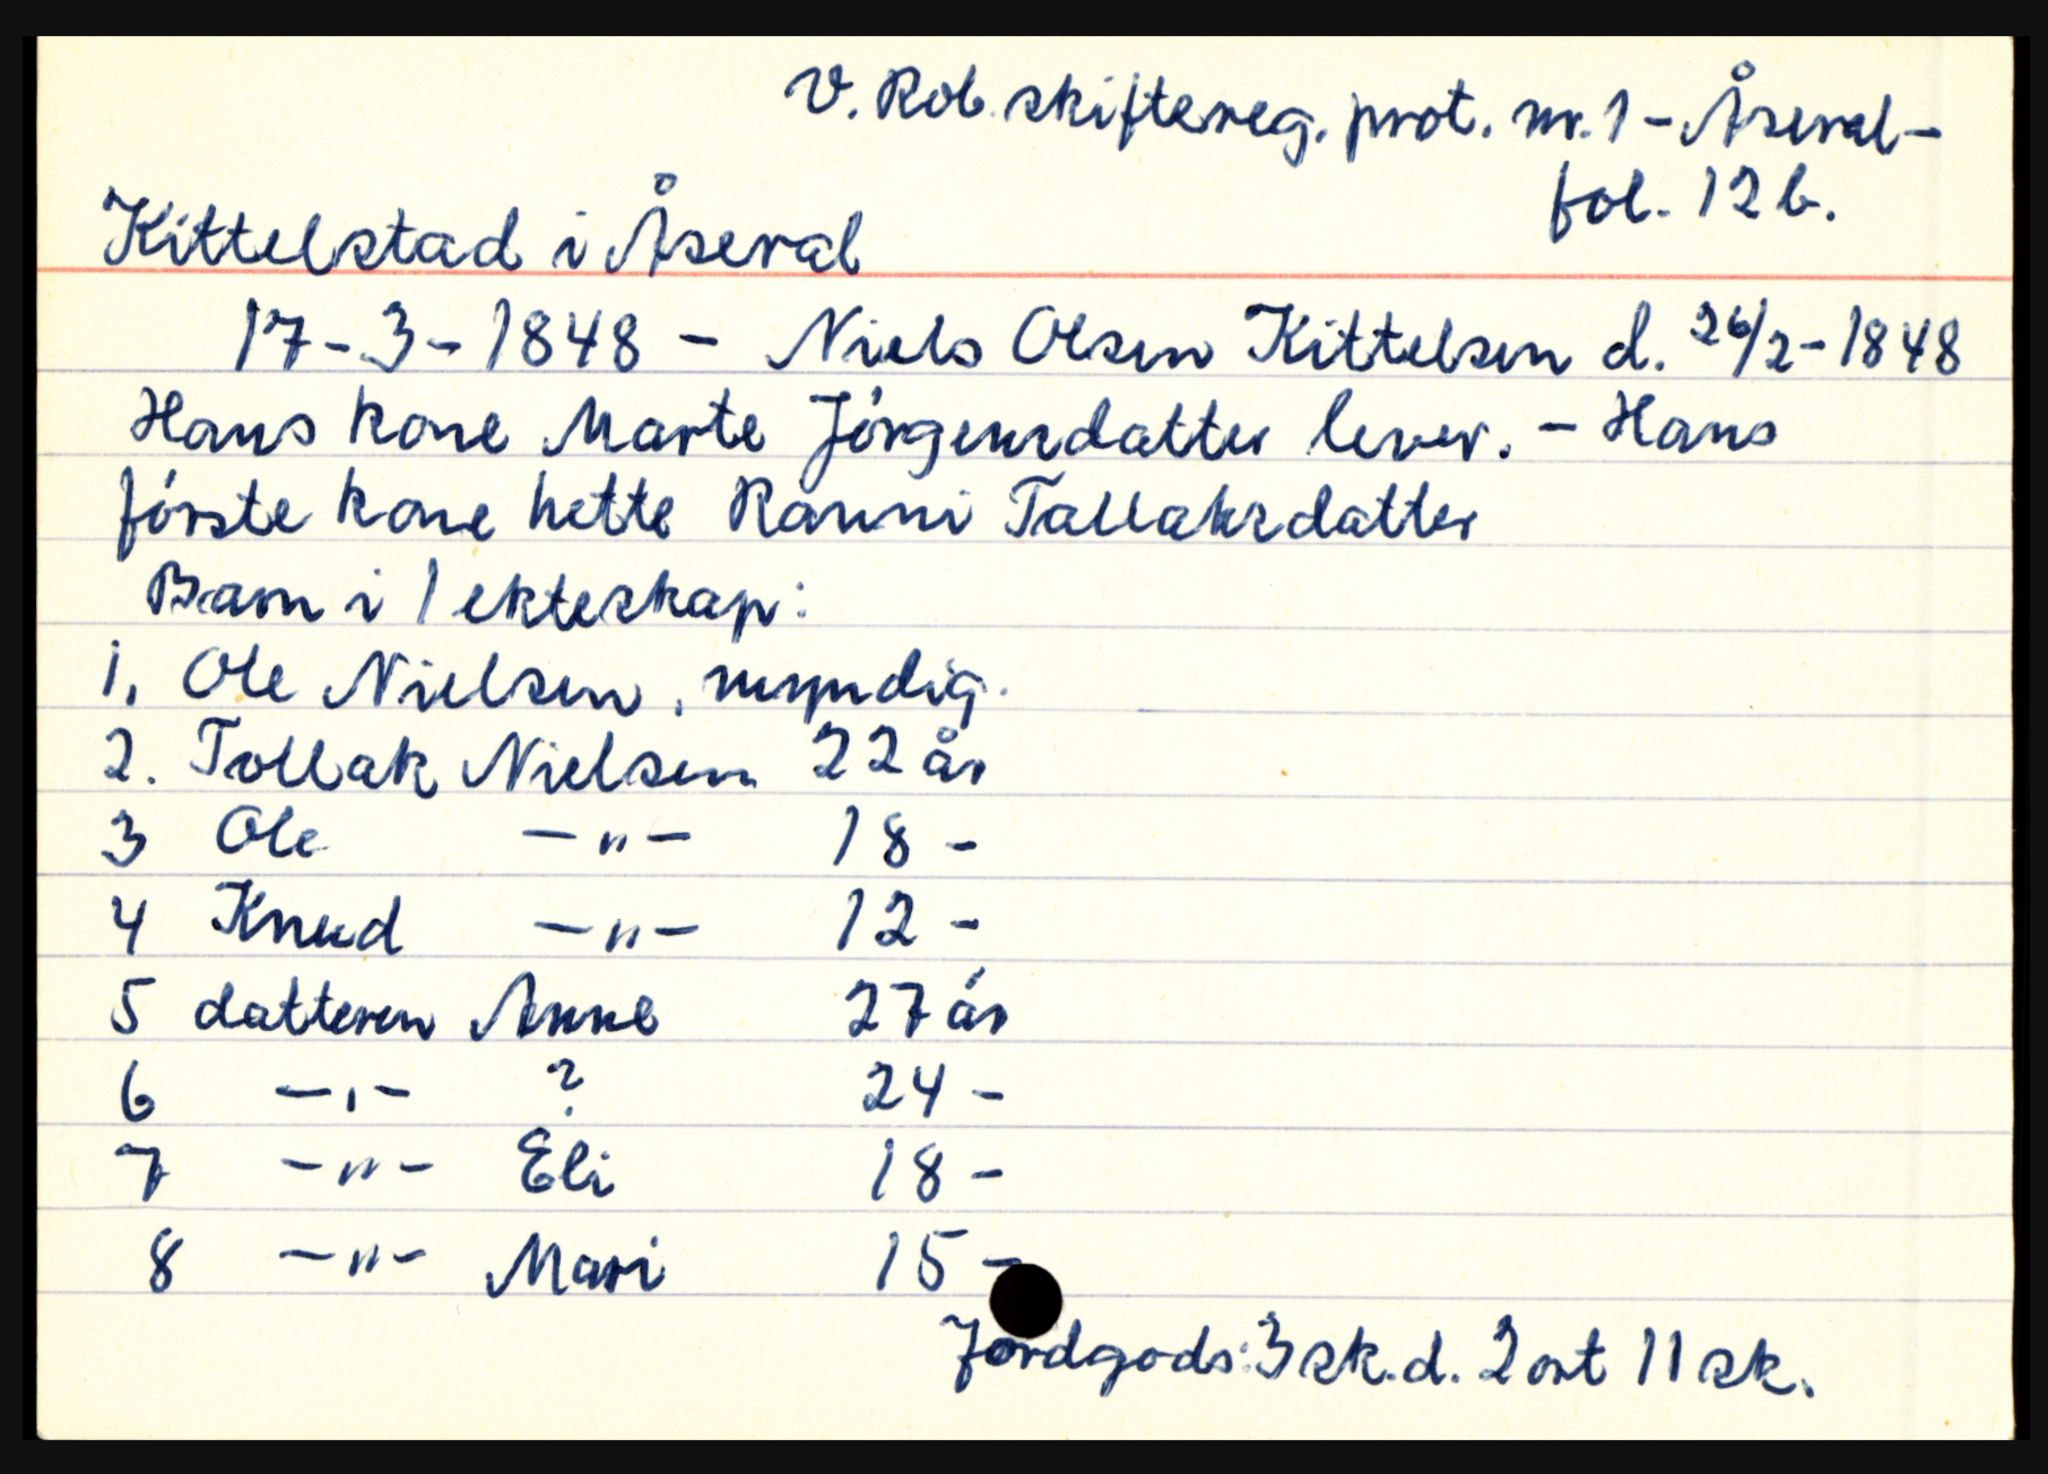 V. Rob. skiftereg. prot. nr. 1 - Åseral -
fol. 12 b.
Kittelstad i Åseral
17-3-1848 - Niels Olsen Kittelsen d. 26/2-1848
Hans kone Marte Jórgensdatter lever. - Hans
fórste kone hette Ranni Tallaksdatter
Barn i 1 ekteskap:
1. Ole Nielsen, myndig.
2. Tollak Nielsen 22 år
3 Ole -"- 18 -
4 Knud -"- 12 -
5 datteren Anne 27 år
6 -"- ? 24 -
7 -"- Eli 18 -
8 -"- Mari 15 -
Jordgods: 3 sk.d. 2 ort 11 sk.